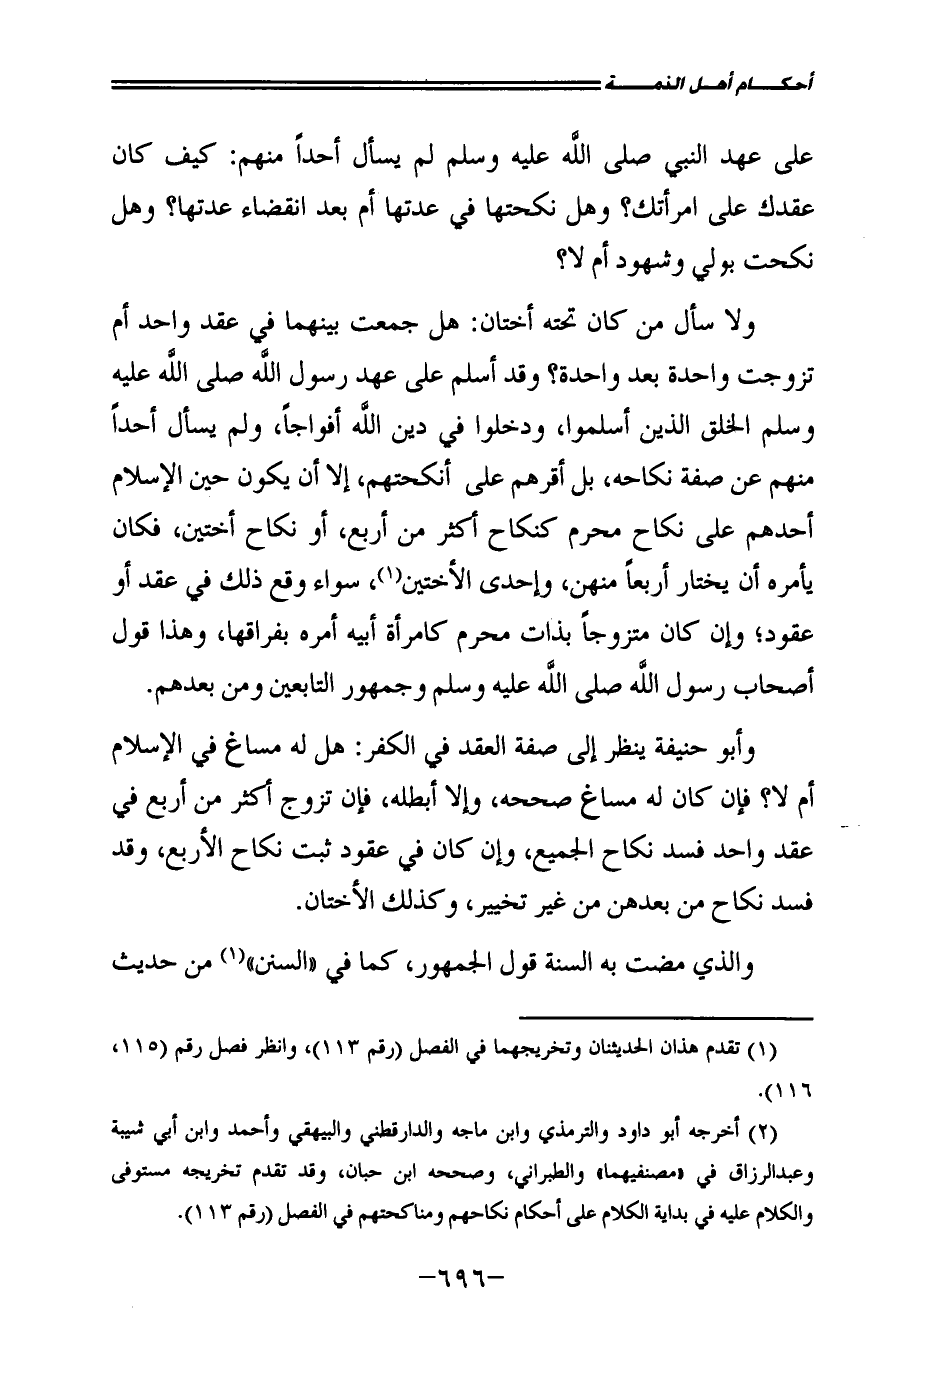 أحكـــام أهـل الذمـــة
على عهد النبي صلى اللَّه عليه وسلم لم يسأل أحداً منهم: كيف كان
عقدك على امرأتك؟ وهل نكحتها في عدتها أم بعد انقضاء عدتها؟ وهل
نكحت بولي وشهود أم لا؟
ولا سأل من كان تحته أختان: هل جمعت بينهما في عقد واحد أم
تزوجت واحدة بعد واحدة؟ وقد أسلم على عهد رسول اللَّه صلى اللَّه عليه
وسلم الخلق الذين أسلموا، ودخلوا في دين اللَّه أفواجاً، ولم يسأل أحداً
منهم عن صفة نكاحه، بل أقرهم على أنكحتهم، إلا أن يكون حين الإسلام
أحدهم على نكاح محرم كنكاح أكثر من أربع، أو نكاح أختين، فكان
يأمره أن يختار أربعاً منهن، وإحدى الأختين(١)، سواء وقع ذلك في عقد أو
عقود؛ وإن كان متزوجاً بذات محرم كامرأة أبيه أمره بفراقها، وهذا قول
أصحاب رسول اللَّه صلى اللَّه عليه وسلم وجمهور التابعين ومن بعدهم.
وأبو حنيفة ينظر إلى صفة العقد في الكفر: هل له مساغ في الإسلام
أم لا؟ فإن كان له مساغ صححه، وإلا أبطله، فإن تزوج أكثر من أربع في
عقد واحد فسد نكاح الجميع، وإن كان في عقود ثبت نكاح الأربع، وقد
فسد نكاح من بعدهن من غير تخيير، وكذلك الأختان.
والذي مضت به السنة قول الجمهور، كما في «السنن»(١) من حديث
(١) تقدم هذان الحديثان وتخريجهما في الفصل (رقم ١١٣)، وانظر فصل رقم (١١٥،
١١٦).
(٢) أخرجه أبو داود والترمذي وابن ماجه والدارقطني والبيهقي وأحمد وابن أبي شيبة
وعبدالرزاق في «مصنفيهما» والطبراني، وصححه ابن حبان، وقد تقدم تخريجه مستوفى
والكلام عليه في بداية الكلام على أحكام نكاحهم ومناكحتهم في الفصل (رقم ١١٣).
–٦٩٦–